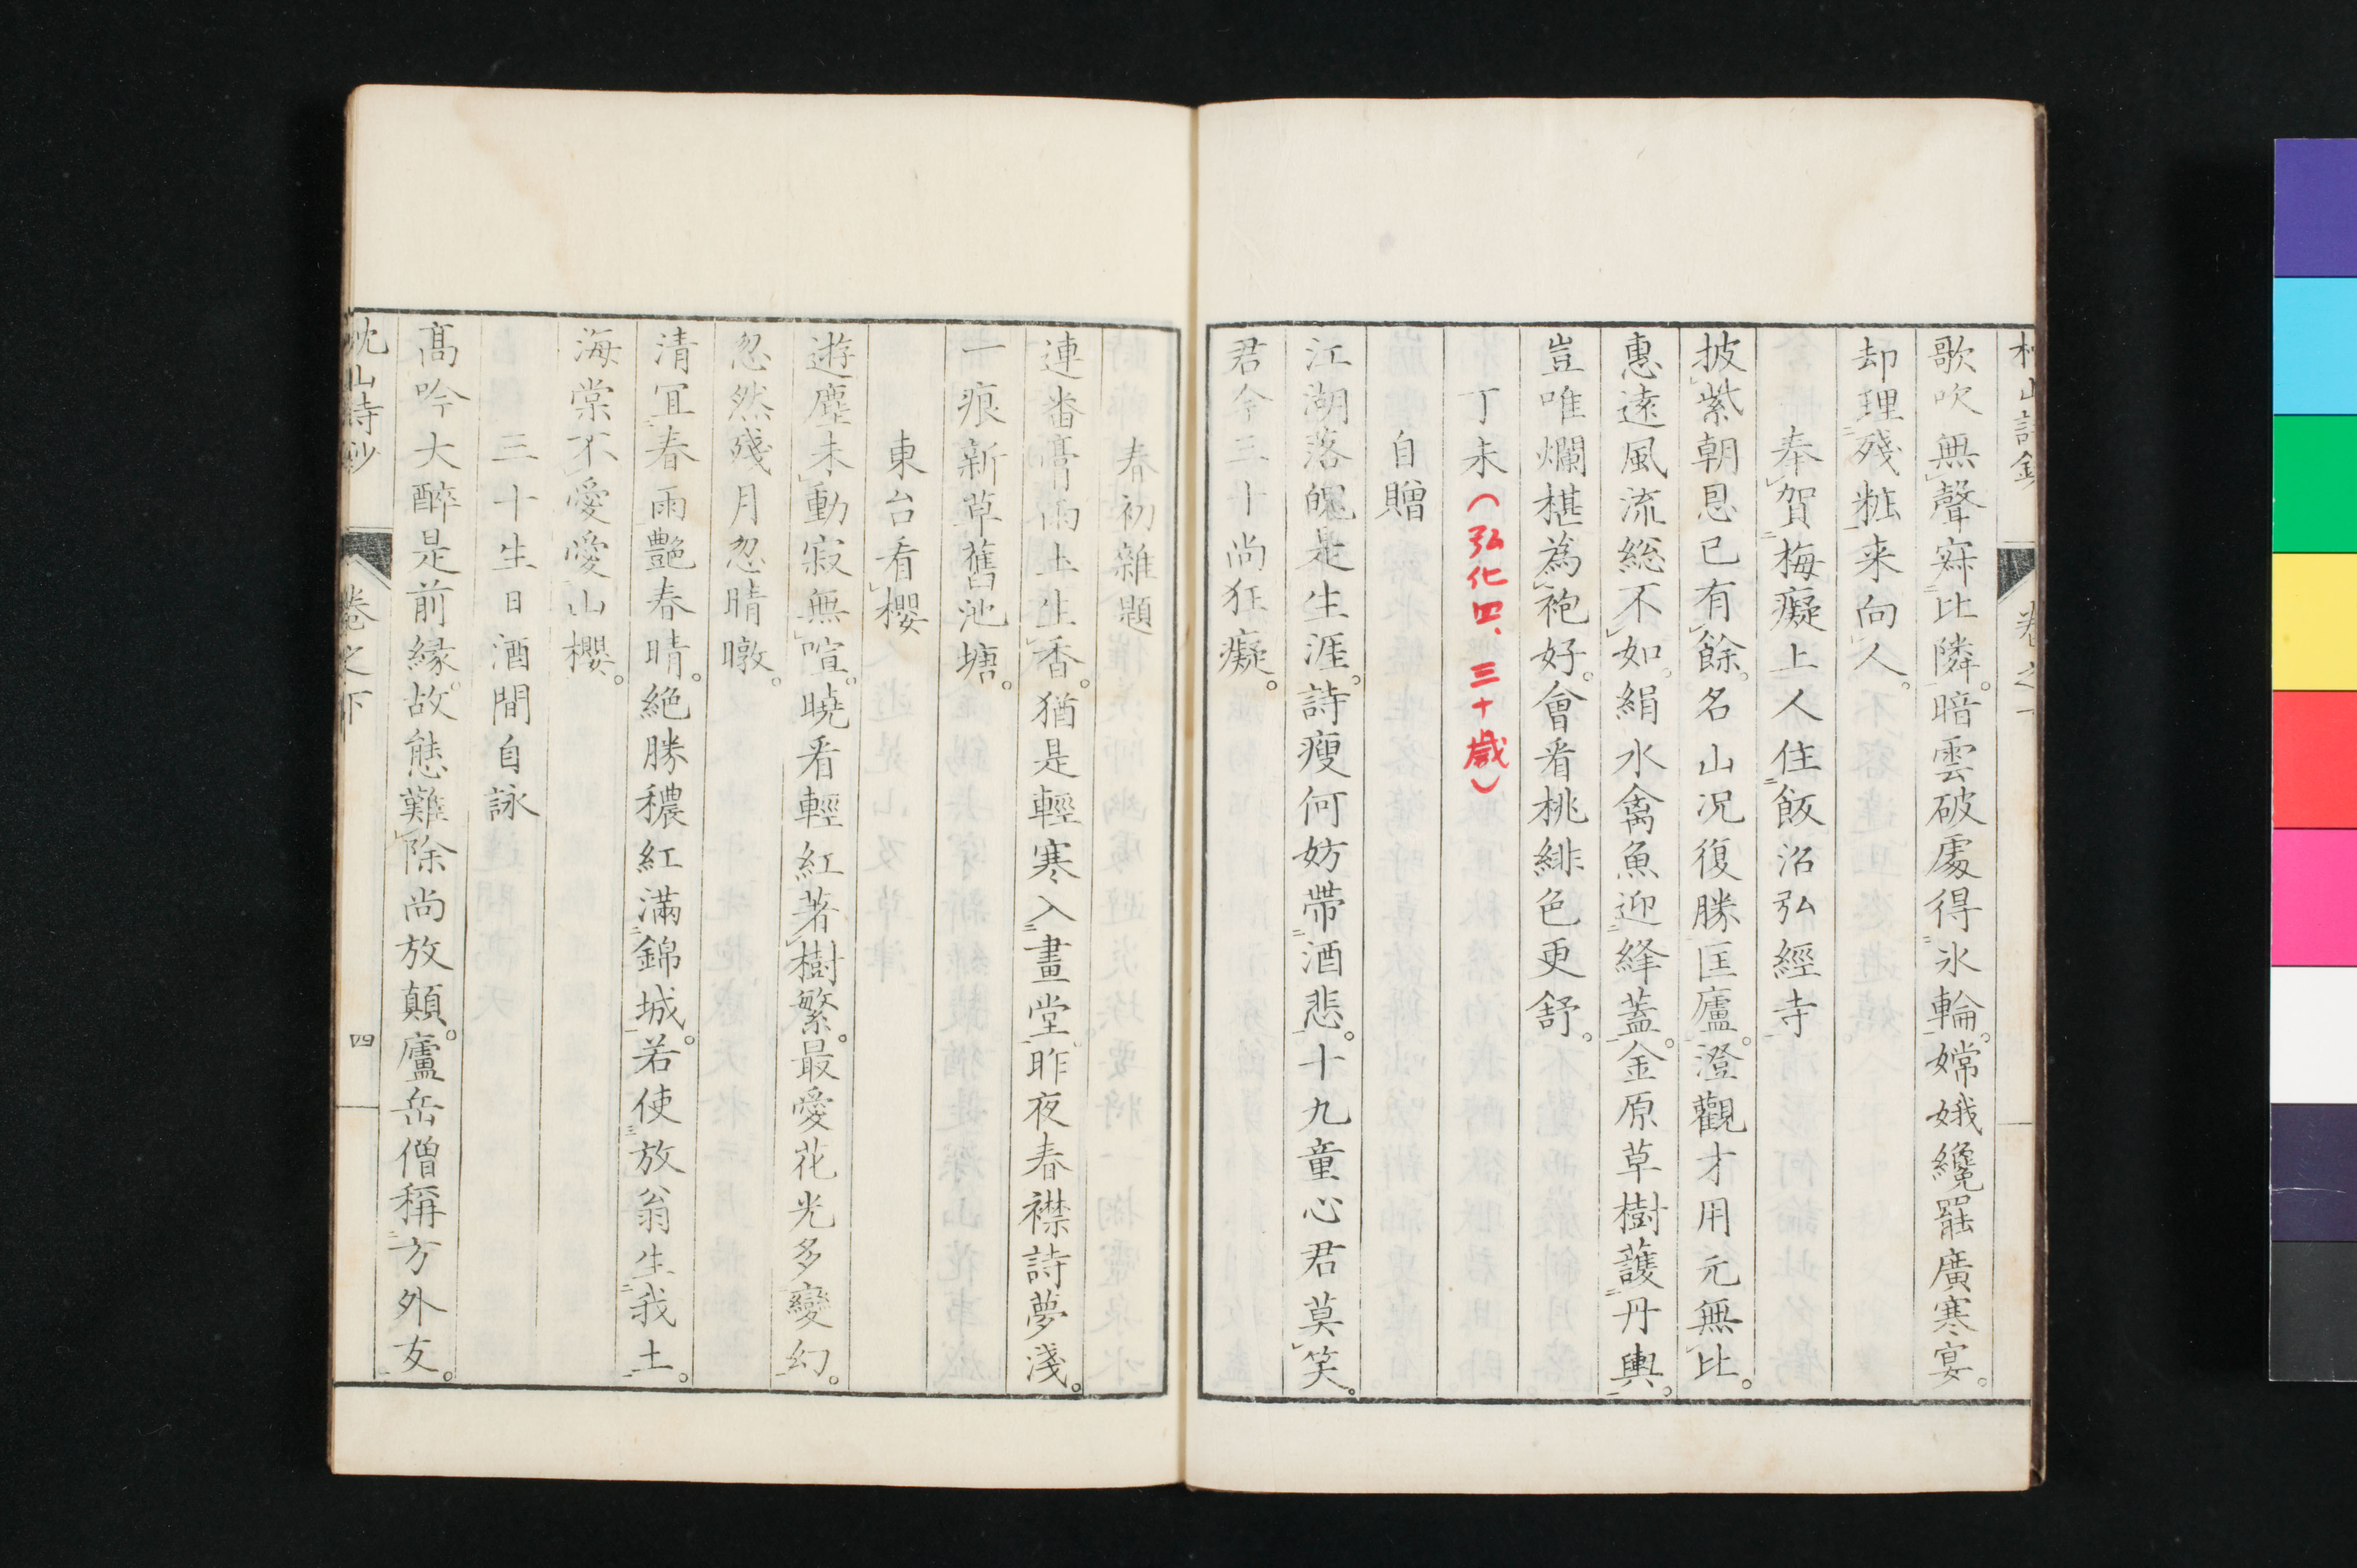 歌吹無聲寂比隣。暗雲破處得氷輪。嫦娥纔罷廣寒宴。
却理殘粧来向人。
奉賀梅癡上人住飯沼弘經寺
披紫朝恩已有餘。名山况復勝匡廬。澄觀才用元無比。
惠遠風流総不如。絹水禽魚迎絳蓋。金原草樹護丹輿。
豈唯爛椹為袍好。會看桃緋色更舒。
丁未（弘化四、三十歳）
自贈
江湖落魄是生涯。詩瘦何妨帶酒悲。十九童心君莫笑。
君今三十尚狂癡。
春初雜題
連番膏雨土生香。猶是輕寒入畫堂。昨夜春襟詩夢淺。
一痕新草舊池塘。
東台看櫻
遊塵未動寂無喧。曉看輕紅著樹繁。最愛花光多變幻。
忽然殘月忽晴暾。
清宜春雨艷春晴。絶勝穠紅滿錦城。若使放翁生我土。
海棠不愛愛山櫻。
三十生日酒間自詠
髙吟大醉是前縁。故態難除尚放顛。廬岳僧稱方外友。
枕山詩鈔 卷之下 四